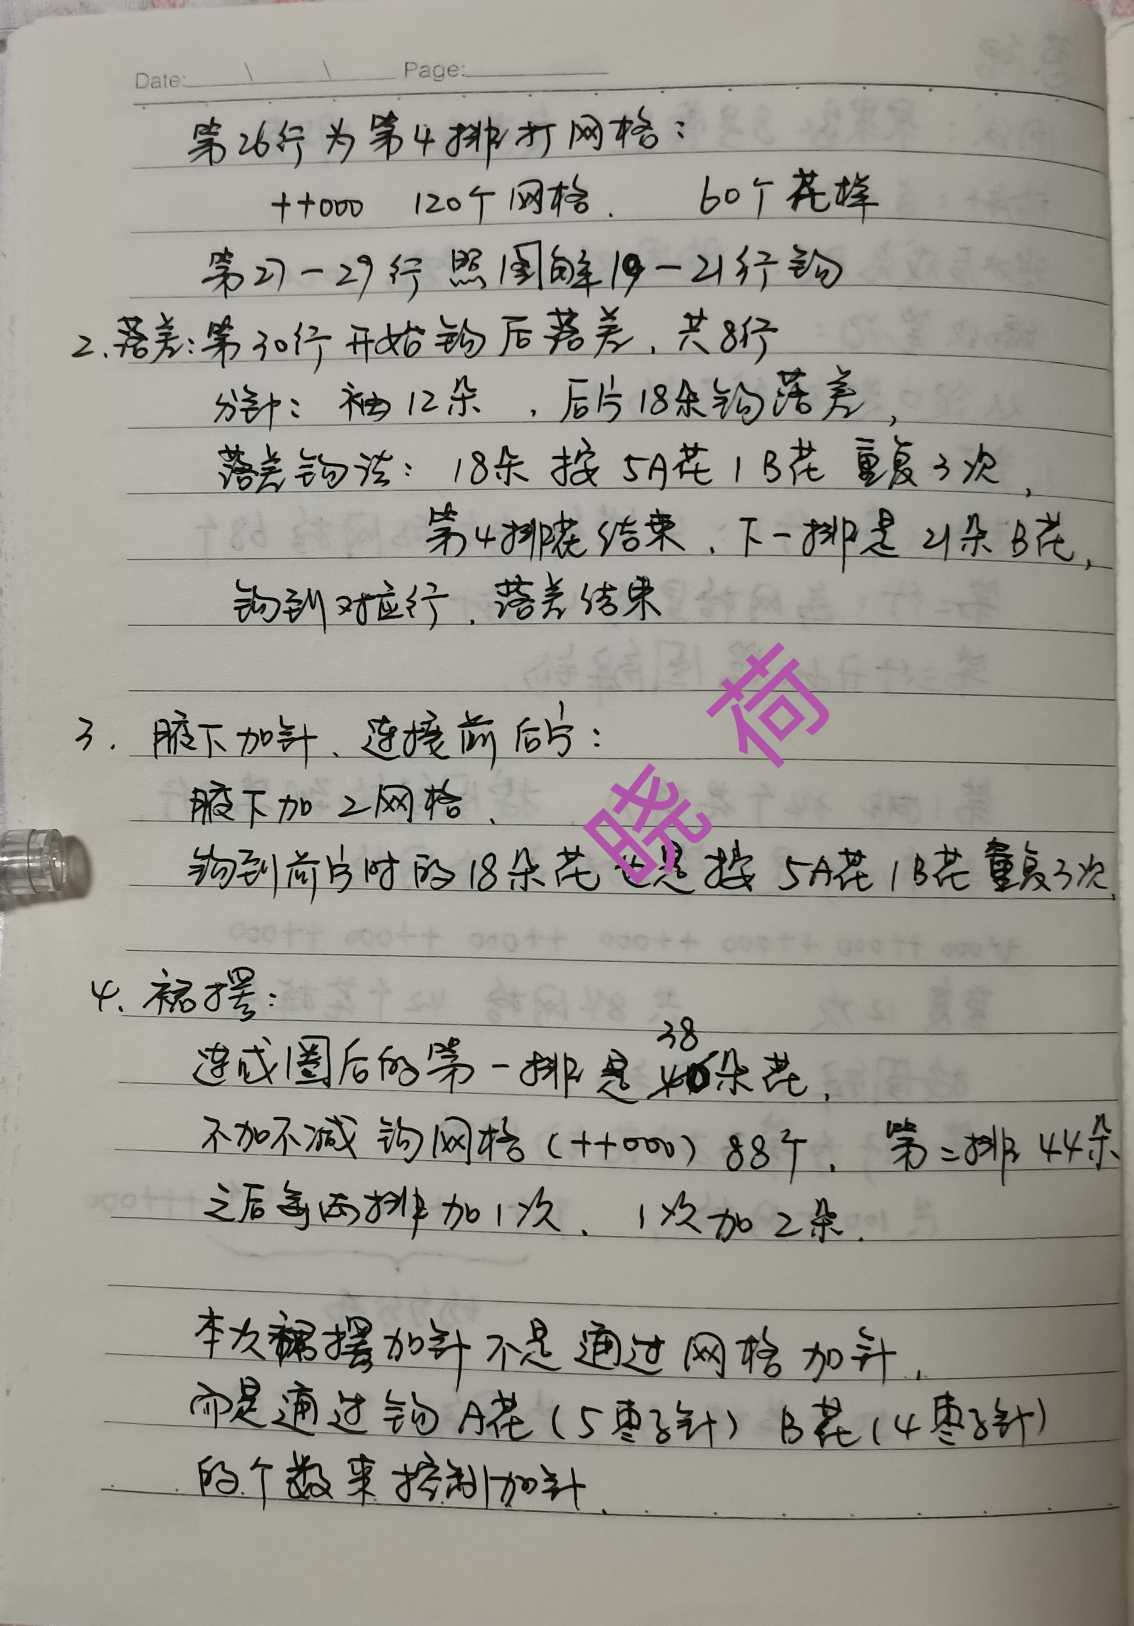 Date: \ \ Page:
第26行为第4排打网格:
++000 120个网格. 60个花样
第27-29行照图解19-21行钩
2.落差:第30行开始钩后落差,共8行
分针: 袖12朵 ,后片18朵钩落差,
落差钩法: 18朵 按5A花1B花 重复3次,
第4排花结束,下一排是21朵B花,
钩到对应行,落差结束
3. 腋下加针、连接前后片:
腋下加2网格、
钩到前片时的18朵花也是按5A花1B花重复3次.
4. 裙摆:
38
连成圈后的第一排是朵花,
不加不减 钩网格(++000)88个, 第二排44朵
之后每两排加1次、1次加2朵.
本次裙摆加针不是通过网格加针,
而是通过钩A花(5枣子针) B花(4枣子针)
的个数来控制加针.
晓荷